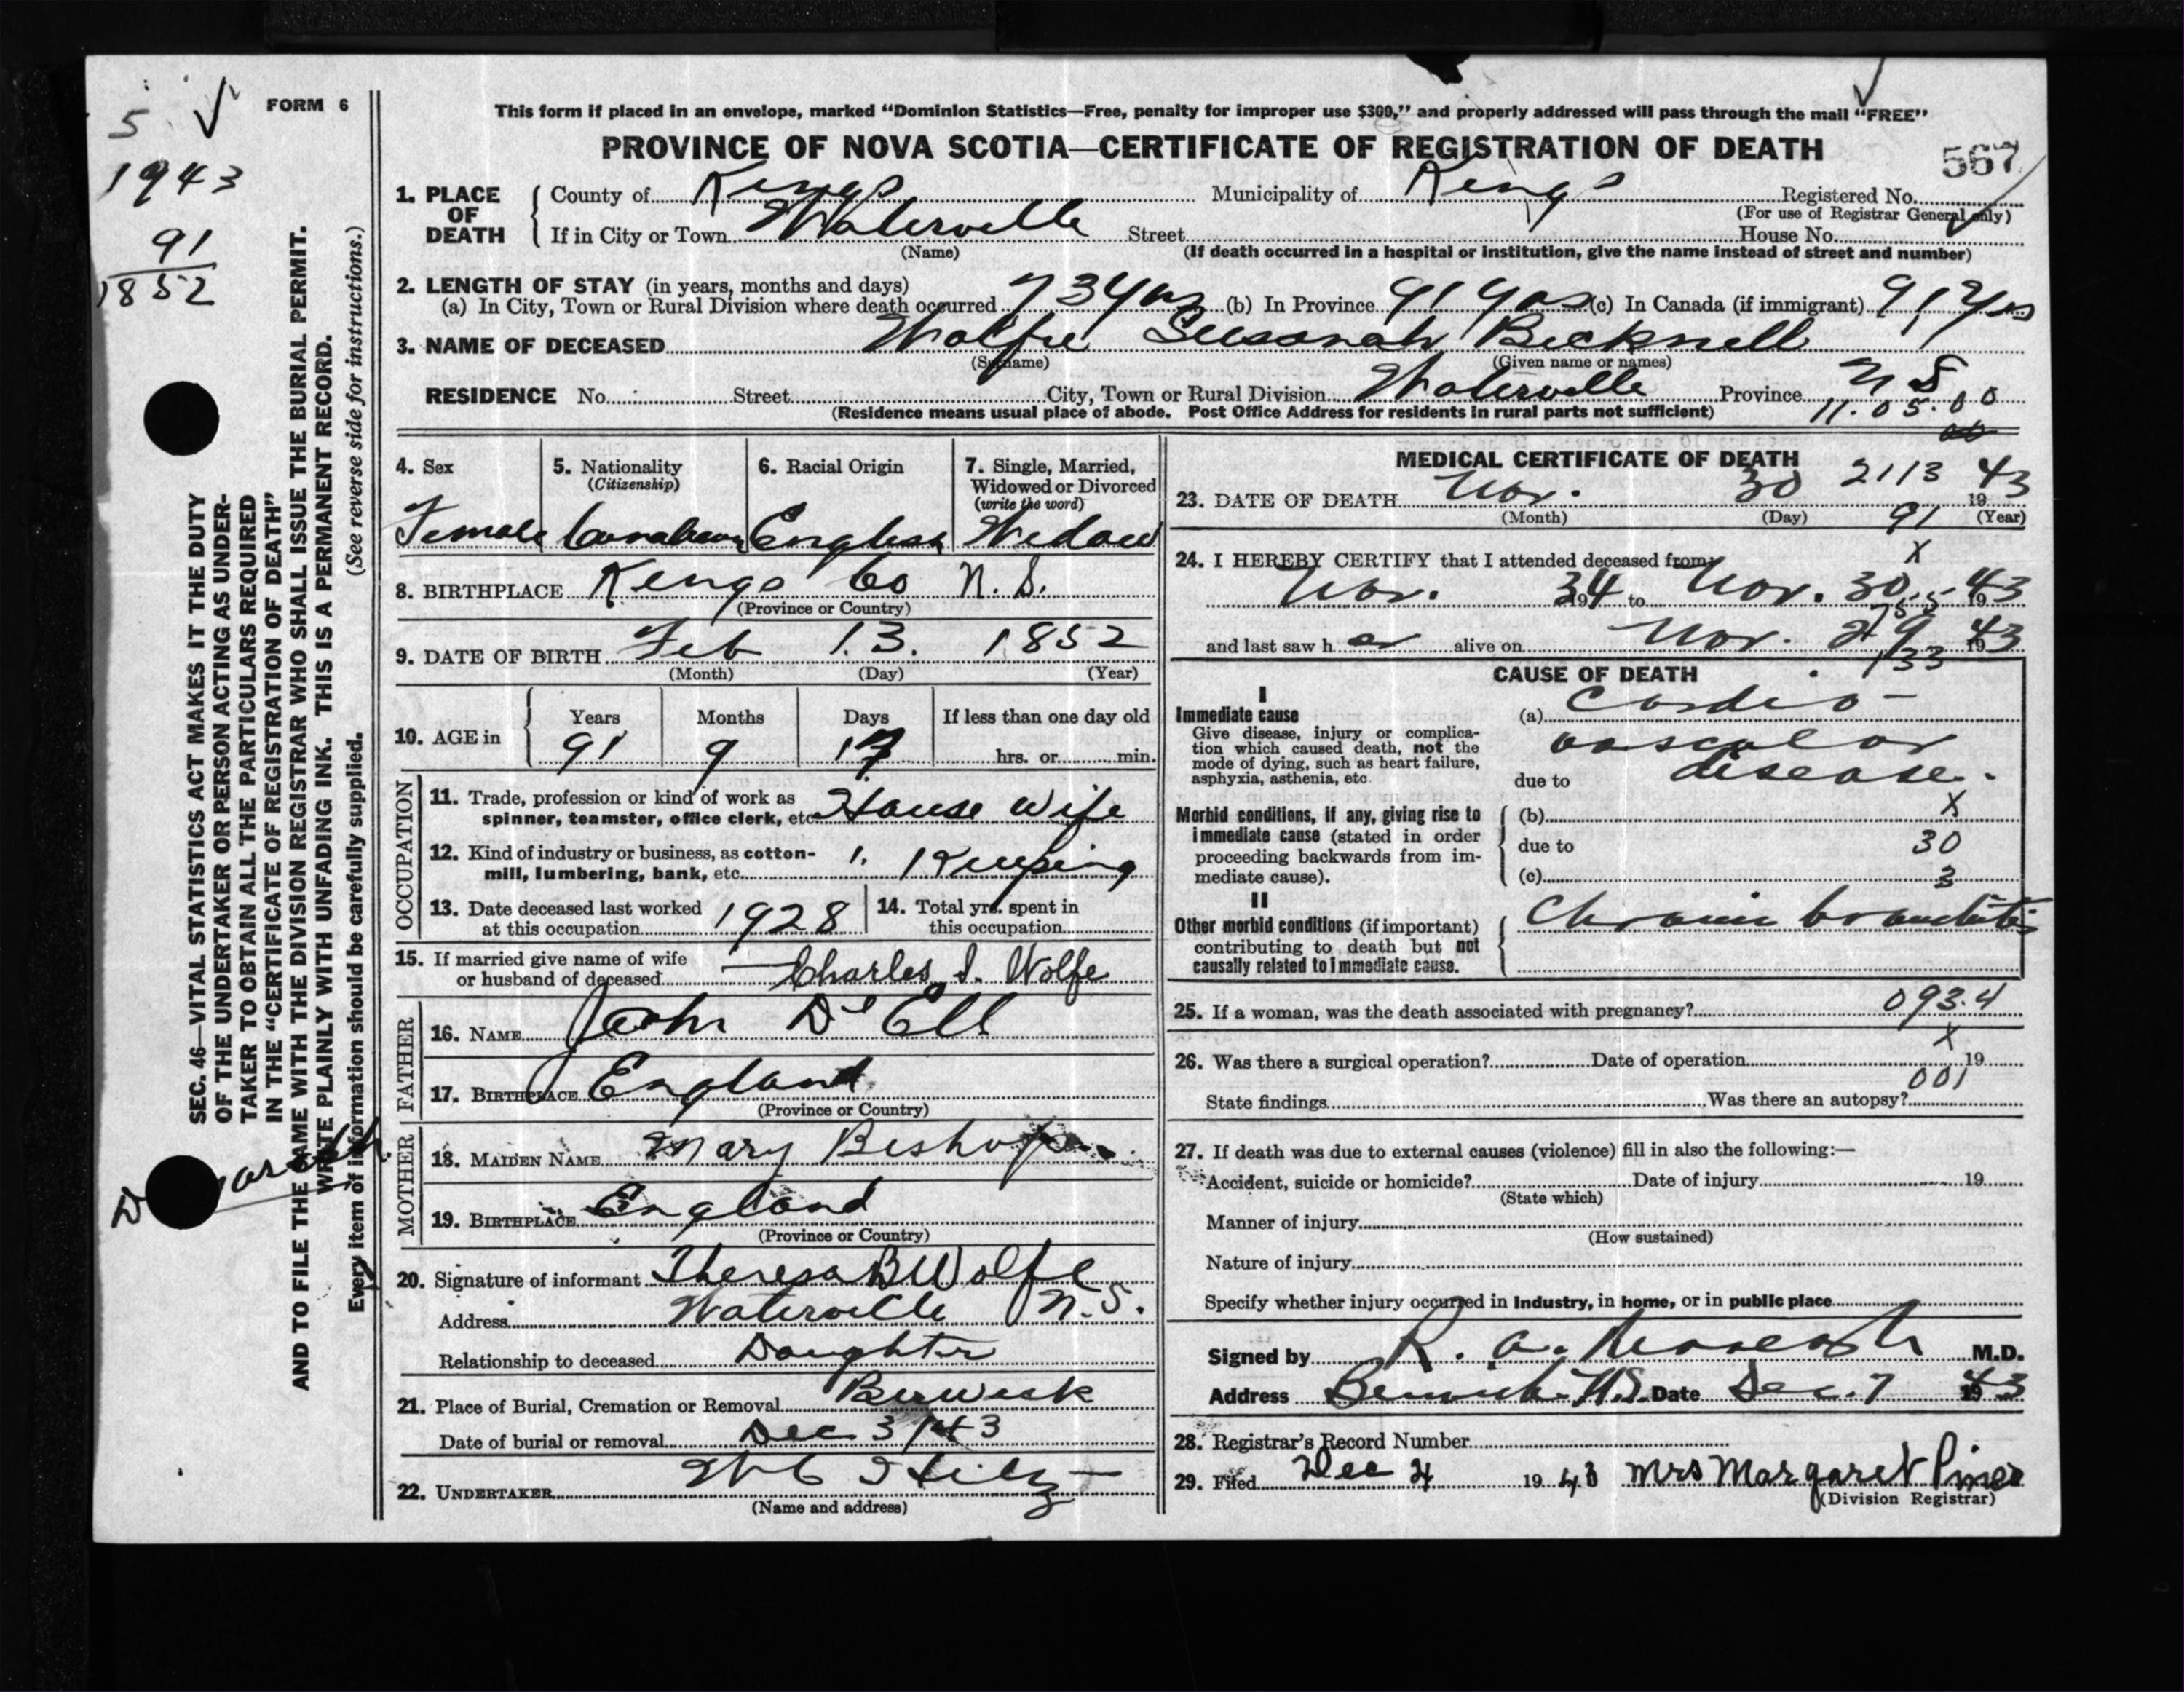 5 ✓
1943
91
1852
FORM 6
This form if placed in an envelope, marked “Dominion Statistics—Free, penalty for improper use $300,” and properly addressed will pass through the mail “FREE”
PROVINCE OF NOVA SCOTIA—CERTIFICATE OF REGISTRATION OF DEATH
567
1. PLACE OF DEATH
County of Kings Municipality of Kings Registered No.
(For use of Registrar General only)
If in City or Town Waterville Street House No.
(Name) (If death occurred in a hospital or institution, give the name instead of street and number)
2. LENGTH OF STAY (in years, months and days)
(a) In City, Town or Rural Division where death occurred 73 yrs (b) In Province 91 yrs (c) In Canada (if immigrant) 91 yrs
3. NAME OF DECEASED Wolfe Susanah Bicknell
(Surname) (Given name or names)
RESIDENCE No. Street City, Town or Rural Division Waterville Province N S
(Residence means usual place of abode. Post Office Address for residents in rural parts not sufficient) 11.05.00
00
4. Sex 5. Nationality (Citizenship) 6. Racial Origin 7. Single, Married, Widowed or Divorced (write the word)
Female Canadian English Widow
8. BIRTHPLACE Kings Co N.S.
(Province or Country)
9. DATE OF BIRTH Feb 13. 1852
(Month) (Day) (Year)
10. AGE in Years Months Days If less than one day old
91 9 17 hrs. or min.
OCCUPATION
11. Trade, profession or kind of work as spinner, teamster, office clerk, etc. House wife
12. Kind of industry or business, as cotton-mill, lumbering, bank, etc. Keeping
13. Date deceased last worked at this occupation 1928
14. Total yrs. spent in this occupation
15. If married give name of wife or husband of deceased Charles I. Wolfe
FATHER
16. NAME John D'Ell
17. BIRTHPLACE England
(Province or Country)
MOTHER
18. MAIDEN NAME Mary Bishop
19. BIRTHPLACE England
(Province or Country)
20. Signature of informant Theresa B Wolfe
Address Waterville N.S.
Relationship to deceased Daughter
21. Place of Burial, Cremation or Removal Berwick
Date of burial or removal Dec 3/43
22. UNDERTAKER W C Hiltz
(Name and address)
MEDICAL CERTIFICATE OF DEATH
2113
23. DATE OF DEATH Nov. 30 1943
(Month) (Day) (Year)
91
X
24. I HEREBY CERTIFY that I attended deceased from
Nov. 1934 to Nov. 30 1943
and last saw her alive on Nov. 29 1943
133
CAUSE OF DEATH
I
Immediate cause
Give disease, injury or complication which caused death, not the mode of dying, such as heart failure, asphyxia, asthenia, etc.
(a) Cardio-
vascular
due to disease.
Morbid conditions, if any, giving rise to immediate cause (stated in order proceeding backwards from immediate cause).
(b) X
due to 30
(c) 3
II
Other morbid conditions (if important) contributing to death but not causally related to immediate cause.
Chronic bronchitis
25. If a woman, was the death associated with pregnancy? 093.4
X
26. Was there a surgical operation? Date of operation 19
001
State findings Was there an autopsy?
27. If death was due to external causes (violence) fill in also the following:—
Accident, suicide or homicide? Date of injury 19
(State which)
Manner of injury
(How sustained)
Nature of injury
Specify whether injury occurred in industry, in home, or in public place
Signed by R. A. M.D.
Address Berwick N.S. Date Dec. 7 1943
28. Registrar's Record Number
29. Filed Dec 4 1943 Mrs Margaret Pineo
(Division Registrar)
SEC. 46—VITAL STATISTICS ACT MAKES IT THE DUTY
OF THE UNDERTAKER OR PERSON ACTING AS UNDER-
TAKER TO OBTAIN ALL THE PARTICULARS REQUIRED
IN THE “CERTIFICATE OF REGISTRATION OF DEATH”
AND TO FILE THE SAME WITH THE DIVISION REGISTRAR WHO SHALL ISSUE THE BURIAL PERMIT.
WRITE PLAINLY WITH UNFADING INK. THIS IS A PERMANENT RECORD.
Every item of information should be carefully supplied. (See reverse side for instructions.)